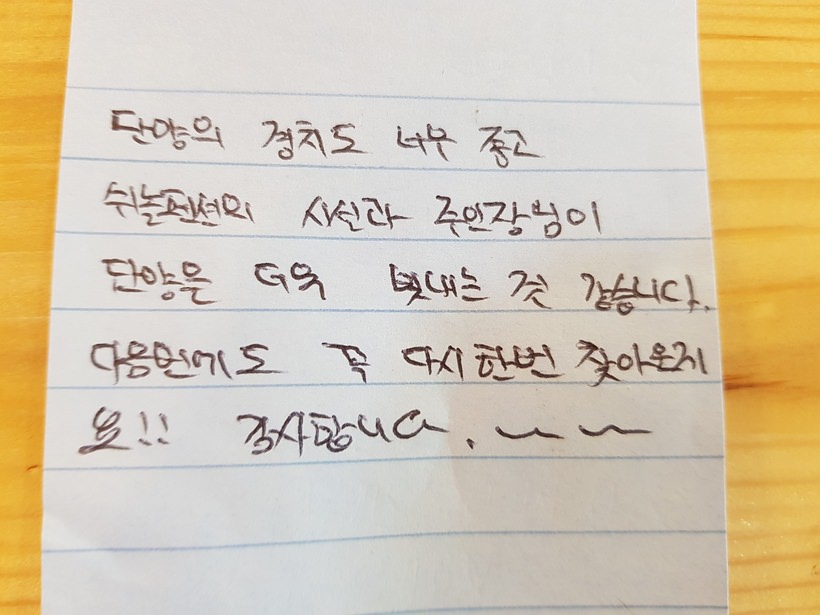 단양의 경치도 너무 좋고
쉬놀펜션의 시선과 주인장님이
단양을 더욱 빛내는 것 같습니다.
다음번에도 꼭 다시한번 찾아온지
요!! 감사합니다. ~~